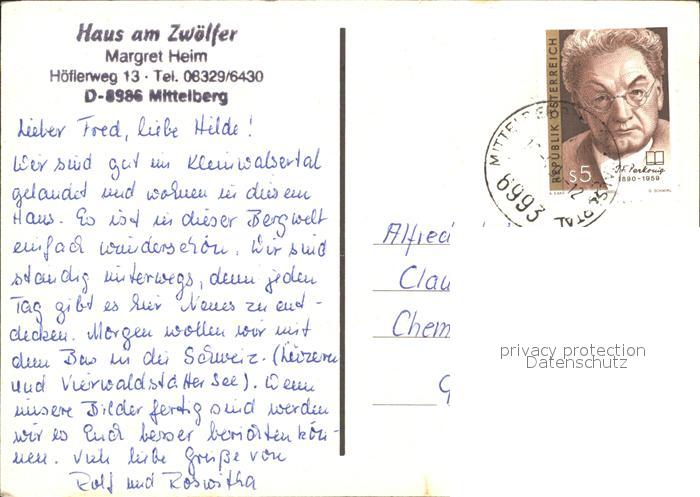 Haus am Zwölfer
Margret Heim
Höflerweg 13 · Tel. 08329/6430
D-8986 Mittelberg
Lieber Fred, liebe Hilde!
Wir sind gut im Kleinwalsertal
gelandet und wohnen in diesem
Haus. Es ist in dieser Bergwelt
einfach wunderschön. Wir sind
ständig unterwegs, denn jeden
Tag gibt es hier Neues zu ent-
decken. Morgen wollen wir mit
dem Bus in die Schweiz. (Luzern
und Vierwaldstätter See). Wenn
unsere Bilder fertig sind werden
wir es Euch besser berichten kön-
nen. Viele liebe Grüße von
Rolf und Roswitha
REPUBLIK ÖSTERREICH
S 5
J.F. Perkonig
1890-1959
6993
Alfred
Clau
Chem
G
privacy protection
Datenschutz